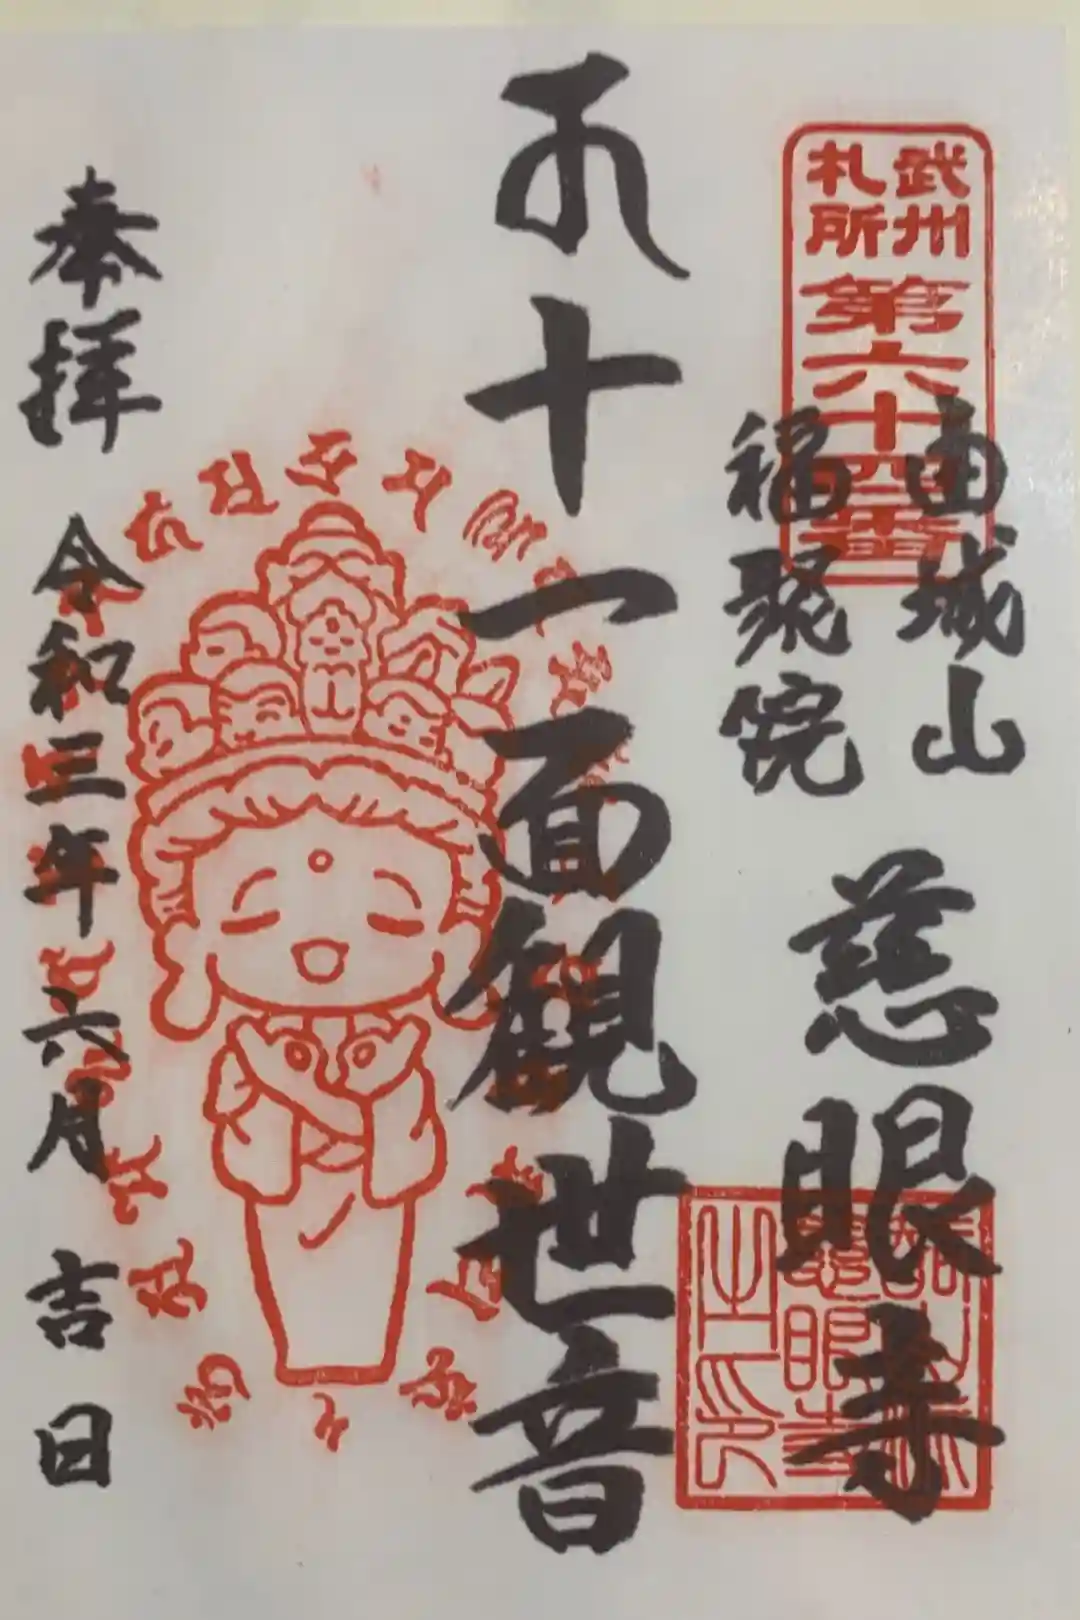 武州
札所
第六十四番
由城山
福聚院
慈眼寺
十一面観世音
奉拝
令和三年六月
吉日